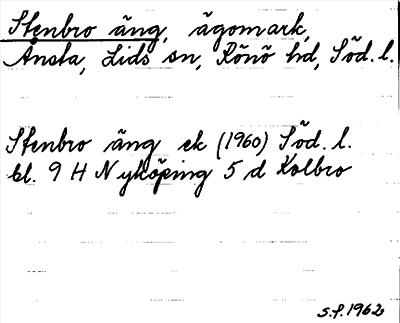 Stenbro äng, ägomark,
Ånsta, Lids sn, Rönö hd, Söd. l.
Stenbro äng ek (1960) Söd. l.
bl. 9 H Nyköping 5 d Kolbro
S.f. 1962